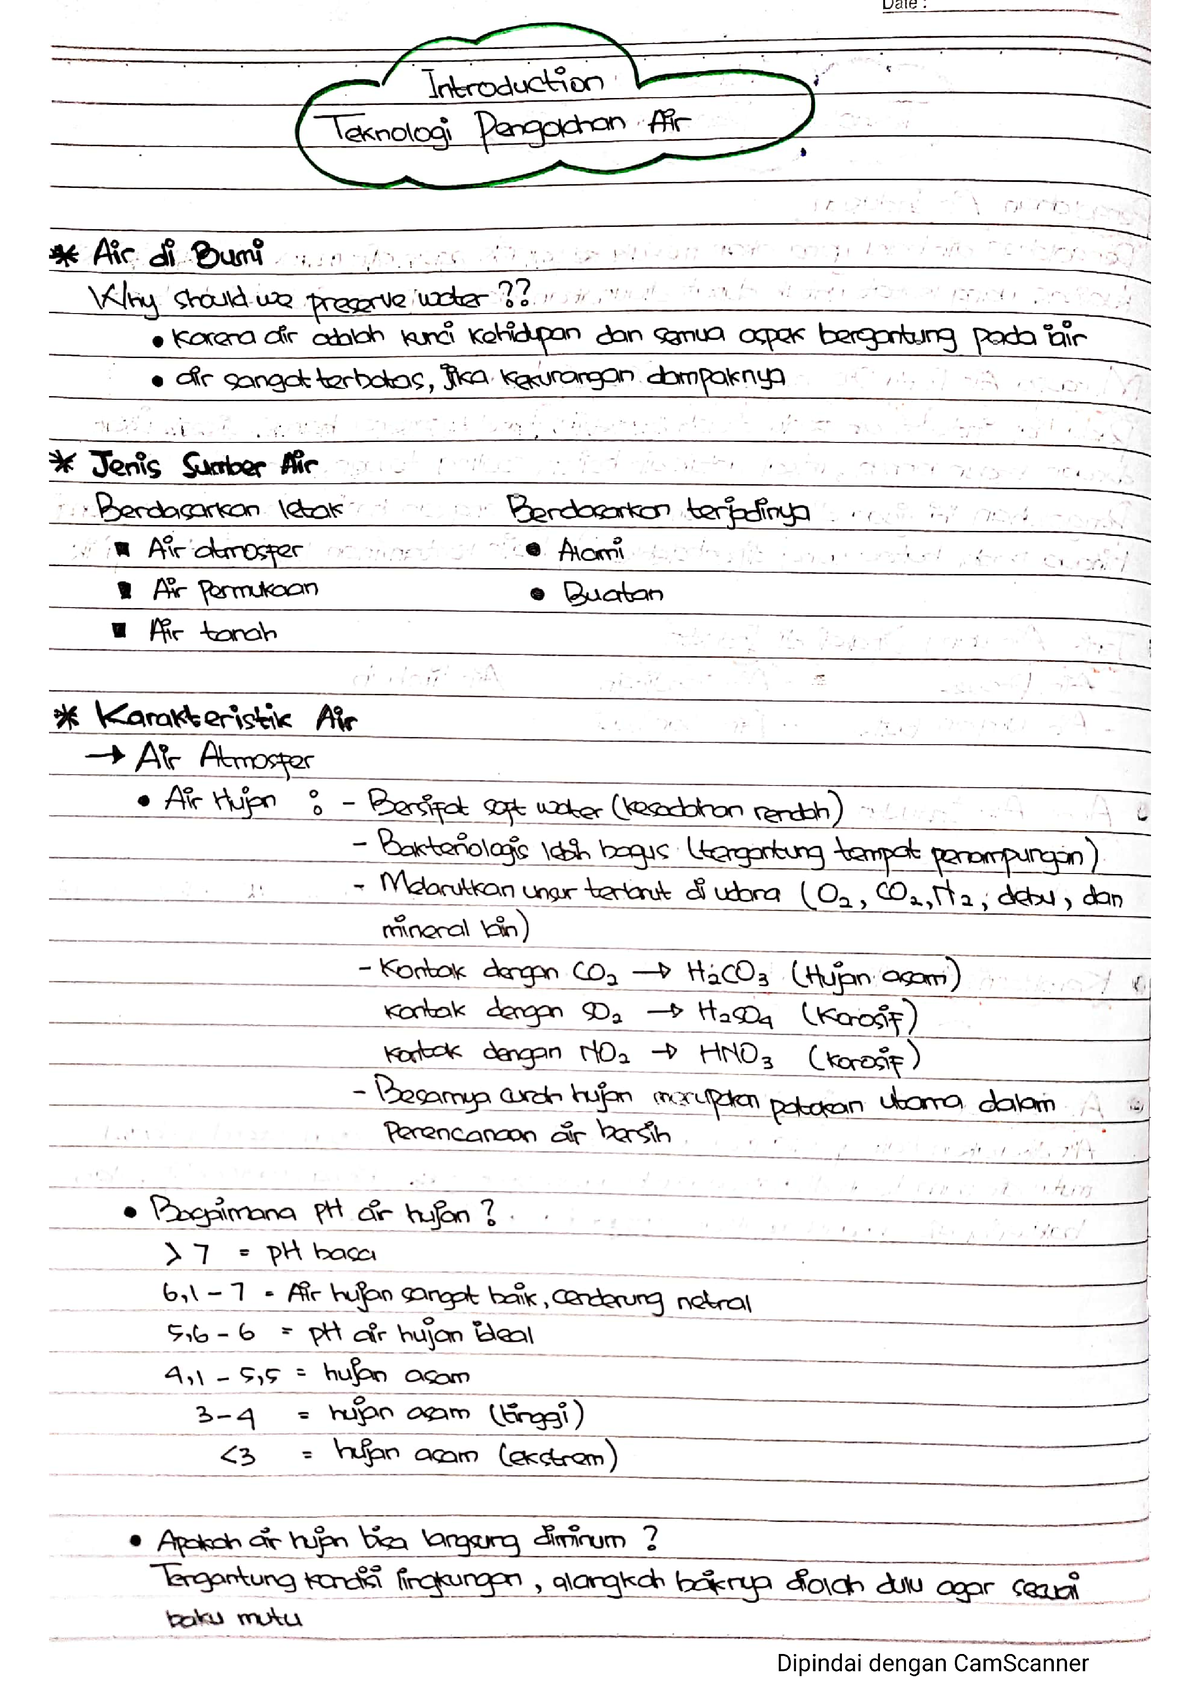 Date :
Introduction
Teknologi Pengolahan Air
* Air di Bumi
Why should we preserve water ??
• Karena air adalah kunci kehidupan dan semua aspek bergantung pada air
• air sangat terbatas, jika kekurangan dampaknya
* Jenis Sumber Air
Berdasarkan letak Berdasarkan terjadinya
▪ Air atmosfer • Alami
▪ Air Permukaan • Buatan
▪ Air tanah
* Karakteristik Air
→ Air Atmosfer
• Air Hujan : - Bersifat soft water (kesadahan rendah)
- Bakteriologis lebih bagus (tergantung tempat penampungan)
- Melarutkan unsur terlarut di udara (O₂, CO₂, N₂, debu, dan
mineral lain)
- Kontak dengan CO₂ → H₂CO₃ (Hujan asam)
kontak dengan SO₂ → H₂SO₄ (Korosif)
kontak dengan NO₂ → HNO₃ (korosif)
- Besarnya curah hujan merupakan patokan utama dalam
Perencanaan air bersih
• Bagaimana pH air hujan ?
> 7 = pH basa
6,1 - 7 = Air hujan sangat baik, cenderung netral
5,6 - 6 = pH air hujan ideal
4,1 - 5,5 = hujan asam
3 - 4 = hujan asam (tinggi)
<3 = hujan asam (ekstrem)
• Apakah air hujan bisa langsung diminum ?
Tergantung kondisi lingkungan, alangkah baiknya diolah dulu agar sesuai
baku mutu
Dipindai dengan CamScanner